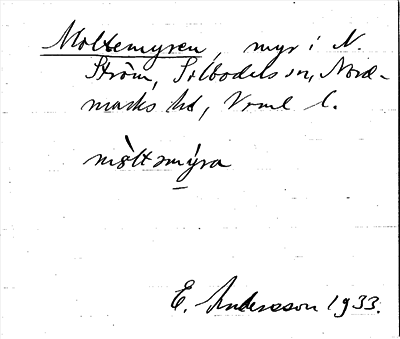 Moltemyren, myr i N.
Ström, Silbodals sn, Nord-
marks hd, Vrml l.
mòltəmýra
E. Andersson 1933.